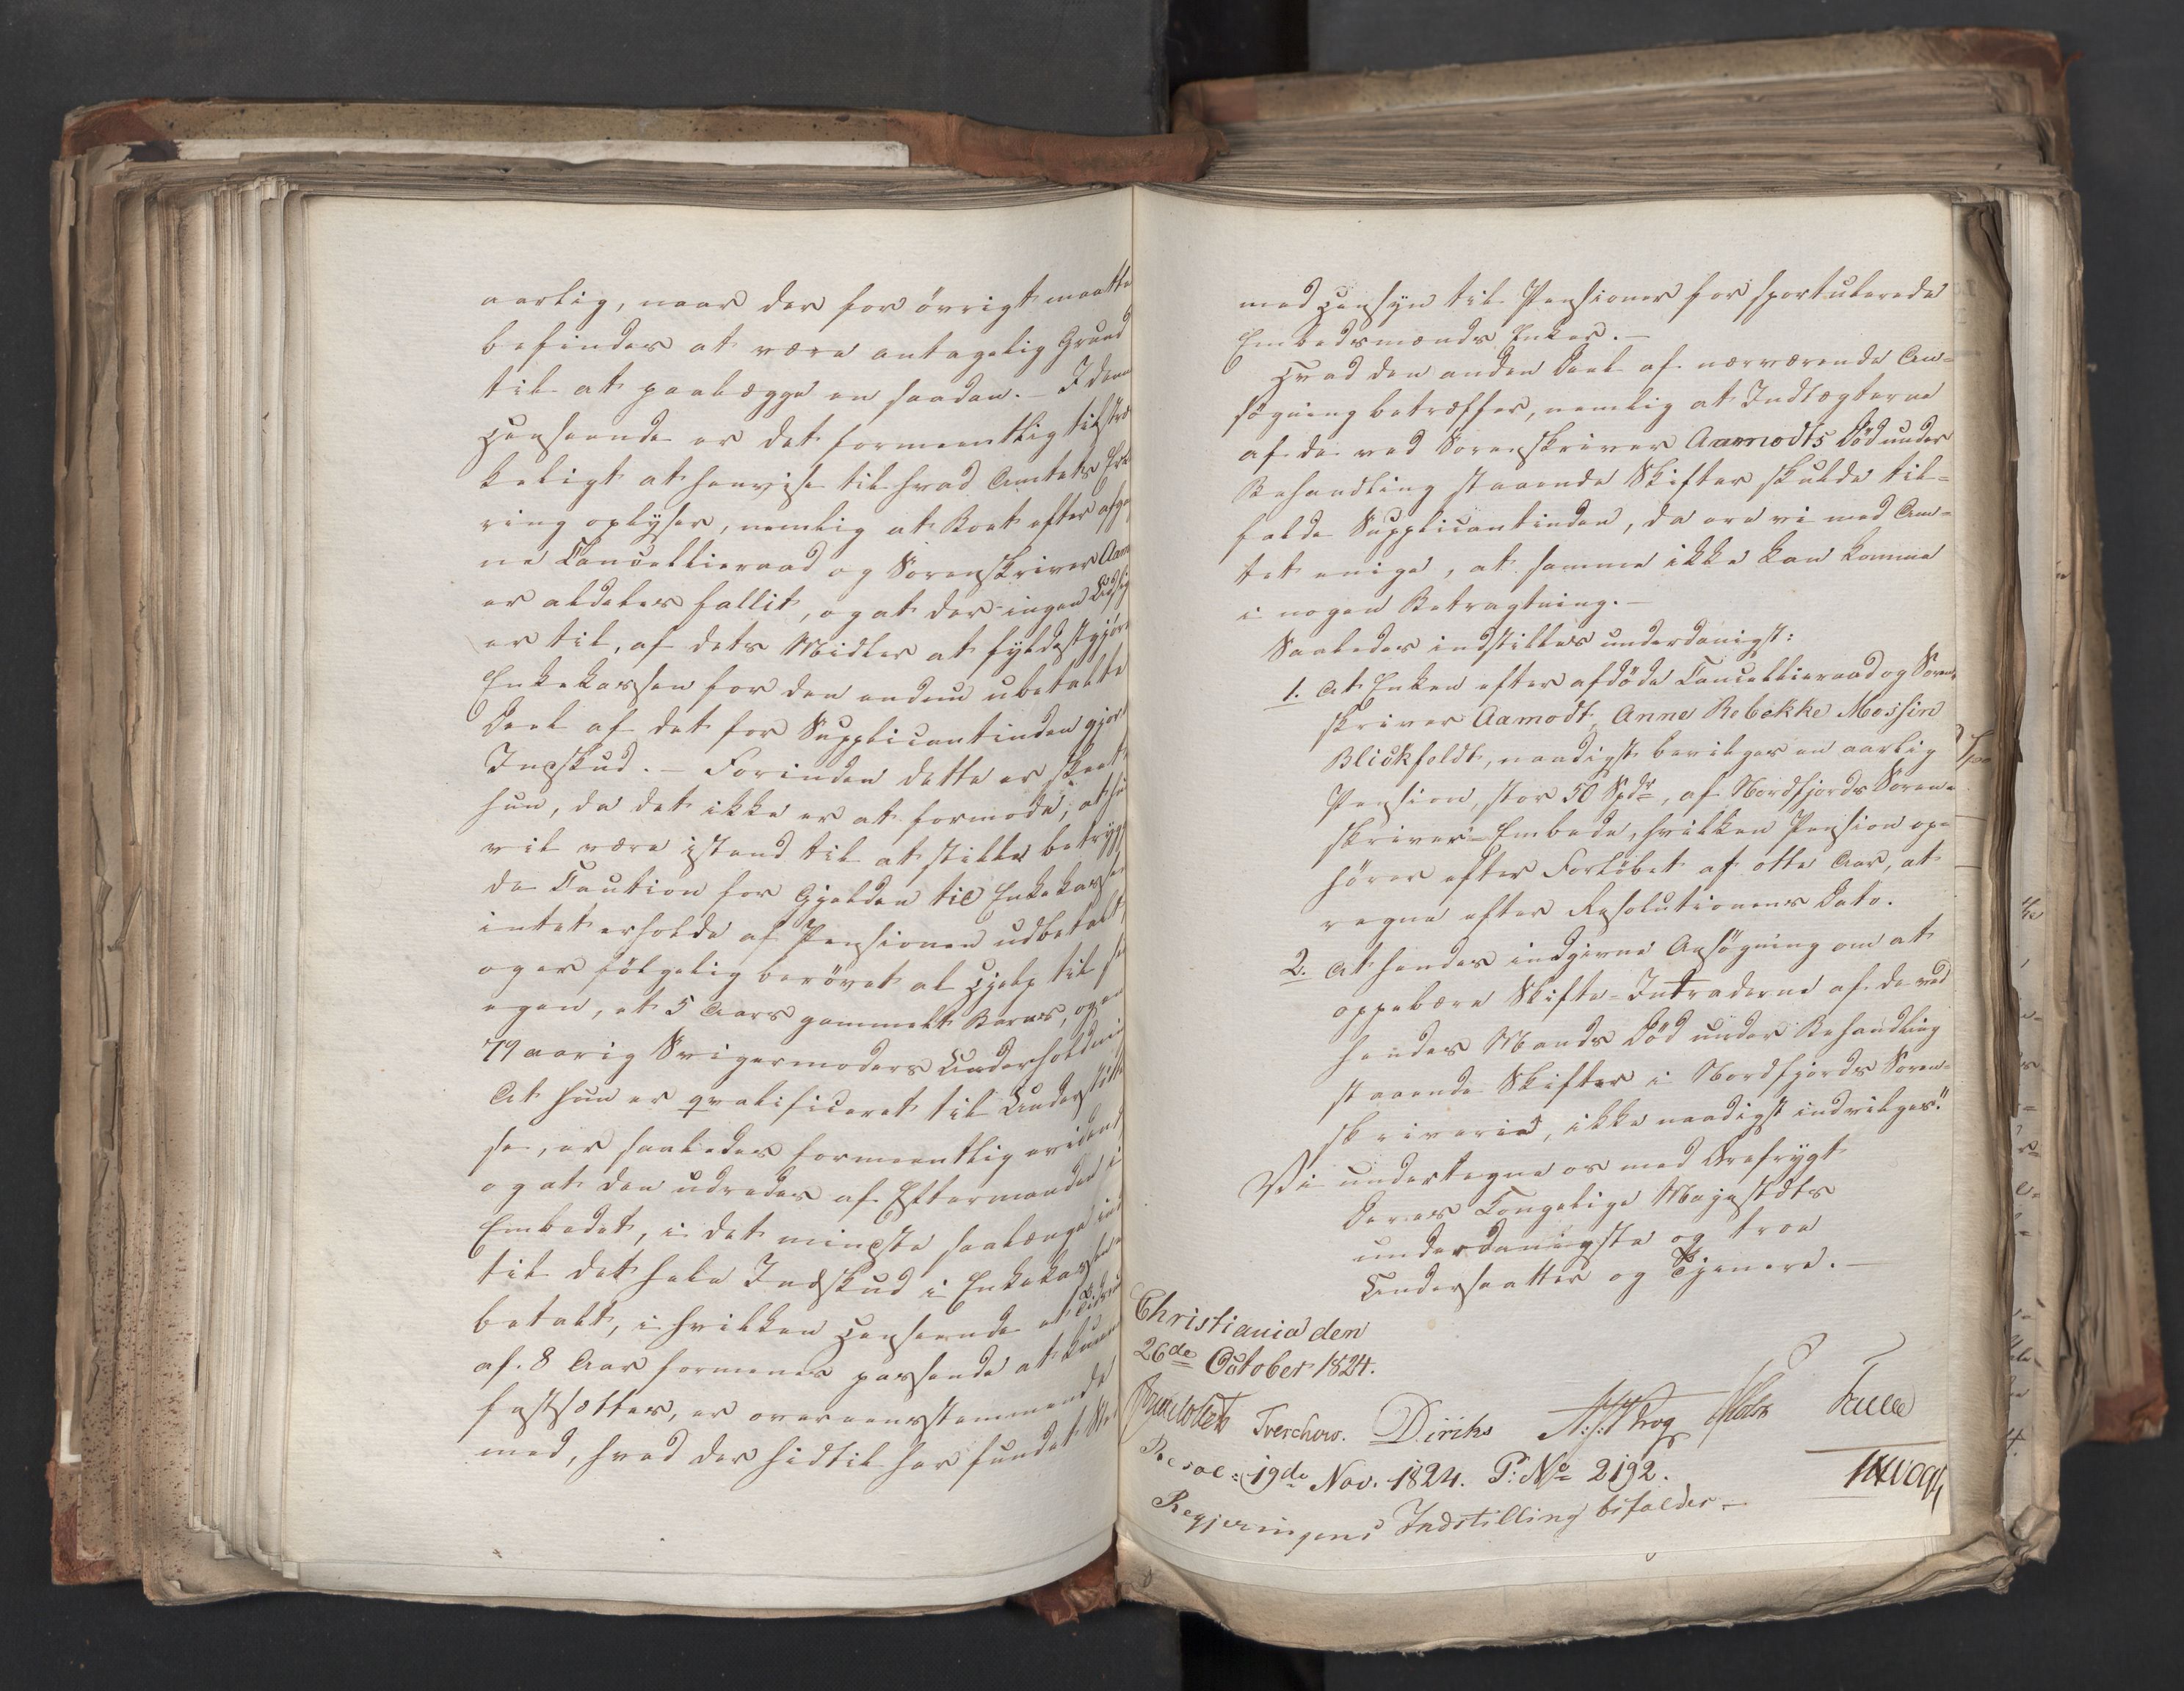 aarlig, naar der for övrigt maatte
befindes at være antagelig Grund
til at paalægge en saadan. – I denne
Henseende er det formeentlig tilstræ
keligt at henvise til hvad Amtets Erk
ring oplyser, nemlig at Boet efter afg
ne Cancellieraad og Sorenskriver Aam
er aldeles fallit, og at der ingen Udsig
er til, af dets Midler at fyldestgjöre
Enkekassen for den endnu ubetalte
Deel af det for Supplicantinden gjor
Indskud. – Forinden dette er skeet
hun, da det ikke er at formode, at hu
vil være istand til at stille betryg
de Caution for Gjælden til Enkekassen
intet erholde af Pensionen udbetalt,
og er fölgelig berövet al Hjelp til sin
egen, et 5 Aars gammelt Barns, og en
79 aarig Svigermoders Underholdnin
At hun er qvalificeret til Understöttel
se, er saaledes formeentlig evident,
og at den udredes af Eftermanden i
Embedet, i det mindste saalænge ind
til det hele Indskud i Enkekassen er
betalt, i hvilken Henseende et Tidsrum
af 8 Aar formenes passende at kunne
fastsættes, er overeensstemmende
med, hvad der hidtil har fundet Sted
med Hensyn til Pensioner for sportulerede
Embedsmænds Enker. –
Hvad den anden Deel af nærværende An-
sögning betræffer, nemlig at Indtægterne
af de ved Sorenskriver Aamodts Död under
Behandling staaende Skifter skulde til-
falde Supplicantinden, da ere vi med Am-
tet enige, at samme ikke kan komme
i nogen Betragtning. –
Saaledes indstilles underdanigst:
1. At Enken efter afdöde Cancellieraad og Soren-
skriver Aamodt, Anne Rebekke Mossin
Blickfeldt, naadigst bevilges en aarlig
Pension, stor 50 Spdr, af Nordfjords Soren-
skriver-Embede, hvilken Pension op-
hörer efter Forlöbet af otte Aar, at
regne efter Resolutionens Dato.
2. At hendes indgivne Ansögning om at
oppebære Skifte-Intraderne af de ved
hendes Mands Död under Behandling
staaende Skifter i Nordfjords Soren-
skriverie, ikke naadigst indvilges."
Vi undertegne os med Ærefrygt
Deres Kongelige Majestæts
underdanigste og troe
Undersaatter og Tjenere. –
Christiania den
26de October 1824.
Treschow. Diriks
Resol: 19de Nov. 1824. P: No 2192.
Regjeringens Indstilling bifaldes –